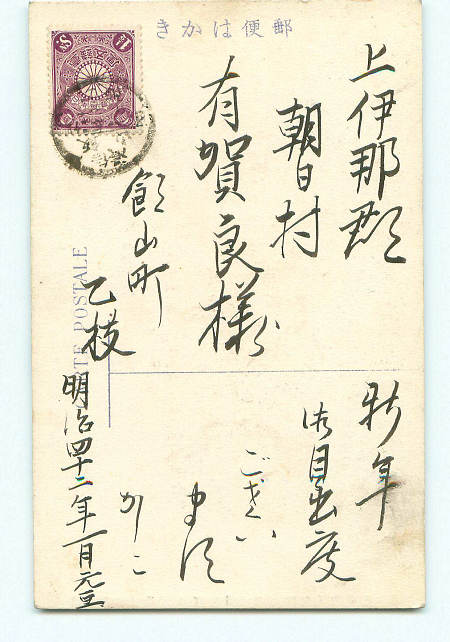 郵便はかき
上伊那郡
朝日村
有賀良様
飯山町
乙枝
明治四十二年一月元旦
新年
御目出度
ござい
ます
かしこ
CARTE POSTALE